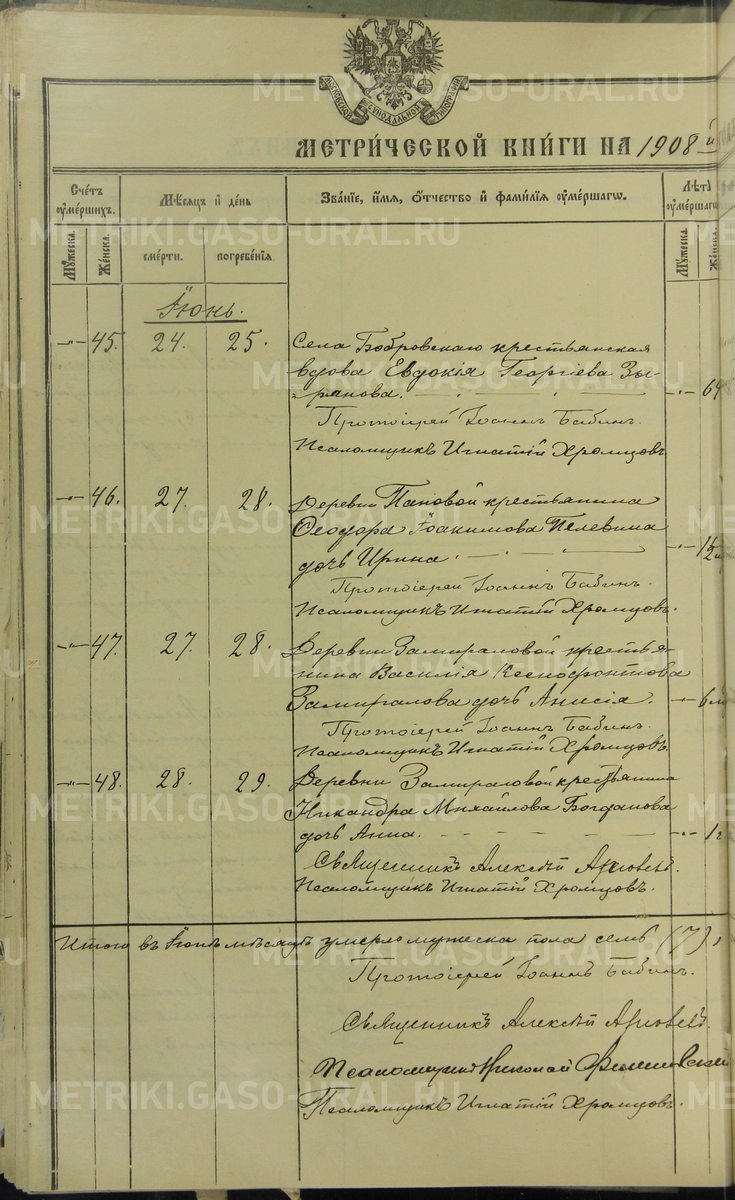 МОСКОВСКОЙ СѴНОДАЛЬНОЙ ТИПОГРАФІИ
МЕТРИ́ЧЕСКОЙ КНИ́ГИ НА 1908й
Сче́тъ ᲂу҆ме́ршихъ.
Мѣ́сяцъ и҆ де́нь
Зва́нїе, и҆́мя, ѻ҆́тчество и҆ фами́лїя ᲂу҆ме́ршагѡ.
Лѣ́тꙋ ᲂу҆ме́ршагѡ
Мꙋ́жеска.
Же́нска.
сме́рти.
погребе́нїя
Мꙋ́жеска.
Же́нска.
Іюнь.
-"- 45. 24. 25. Села Бобровскаго крестьянская
вдова Евдокія Георгіева Зы-
рянова. -"- 64
Протоіерей Іоаннъ Бабинъ.
Псаломщикъ Игнатій Хромцовъ
-"- 46. 27. 28. Деревни Пановой крестьянина
Ѳеодора Іоакимова Пелевина
дочь Ирина. -"-
Протоіерей Іоаннъ Бабинъ.
Псаломщикъ Игнатій Хромцовъ.
-"- 47. 27. 28. Деревни Замираловой крестья-
нина Василія Ксенофонтова
Замиралова дочь Анисія. -"- 6
Протоіерей Іоаннъ Бабинъ.
Псаломщикъ Игнатій Хромцовъ.
-"- 48. 28. 29. Деревни Замираловой крестьянина
Никандра Михаилова Богданова
дочь Анна. -"- 1
Священникъ Алексѣй
Псаломщикъ Игнатій Хромцовъ.
Итого въ Іюнѣ мѣсяцѣ умерло мужеска пола семь (7),
Протоіерей Іоаннъ Бабинъ.
Священникъ Алексѣй
Псаломщикъ Николай
Псаломщикъ Игнатій Хромцовъ.
METRIKI.GASO-URAL.RU